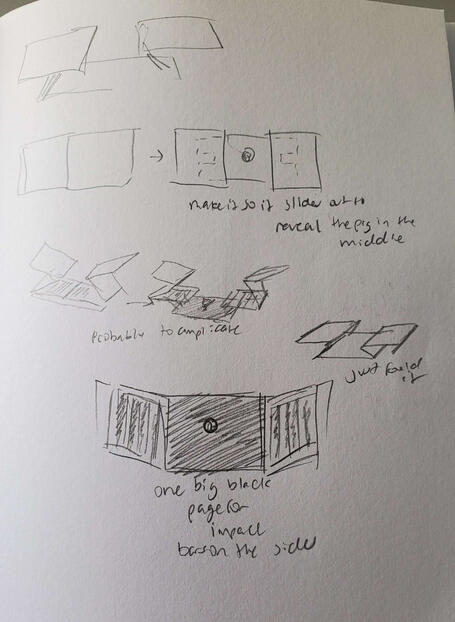 make it so it slides out to
reveal the pig in the
middle
Probably to complicate
just foeld
it
one big black
page for
impact
bars on the sides